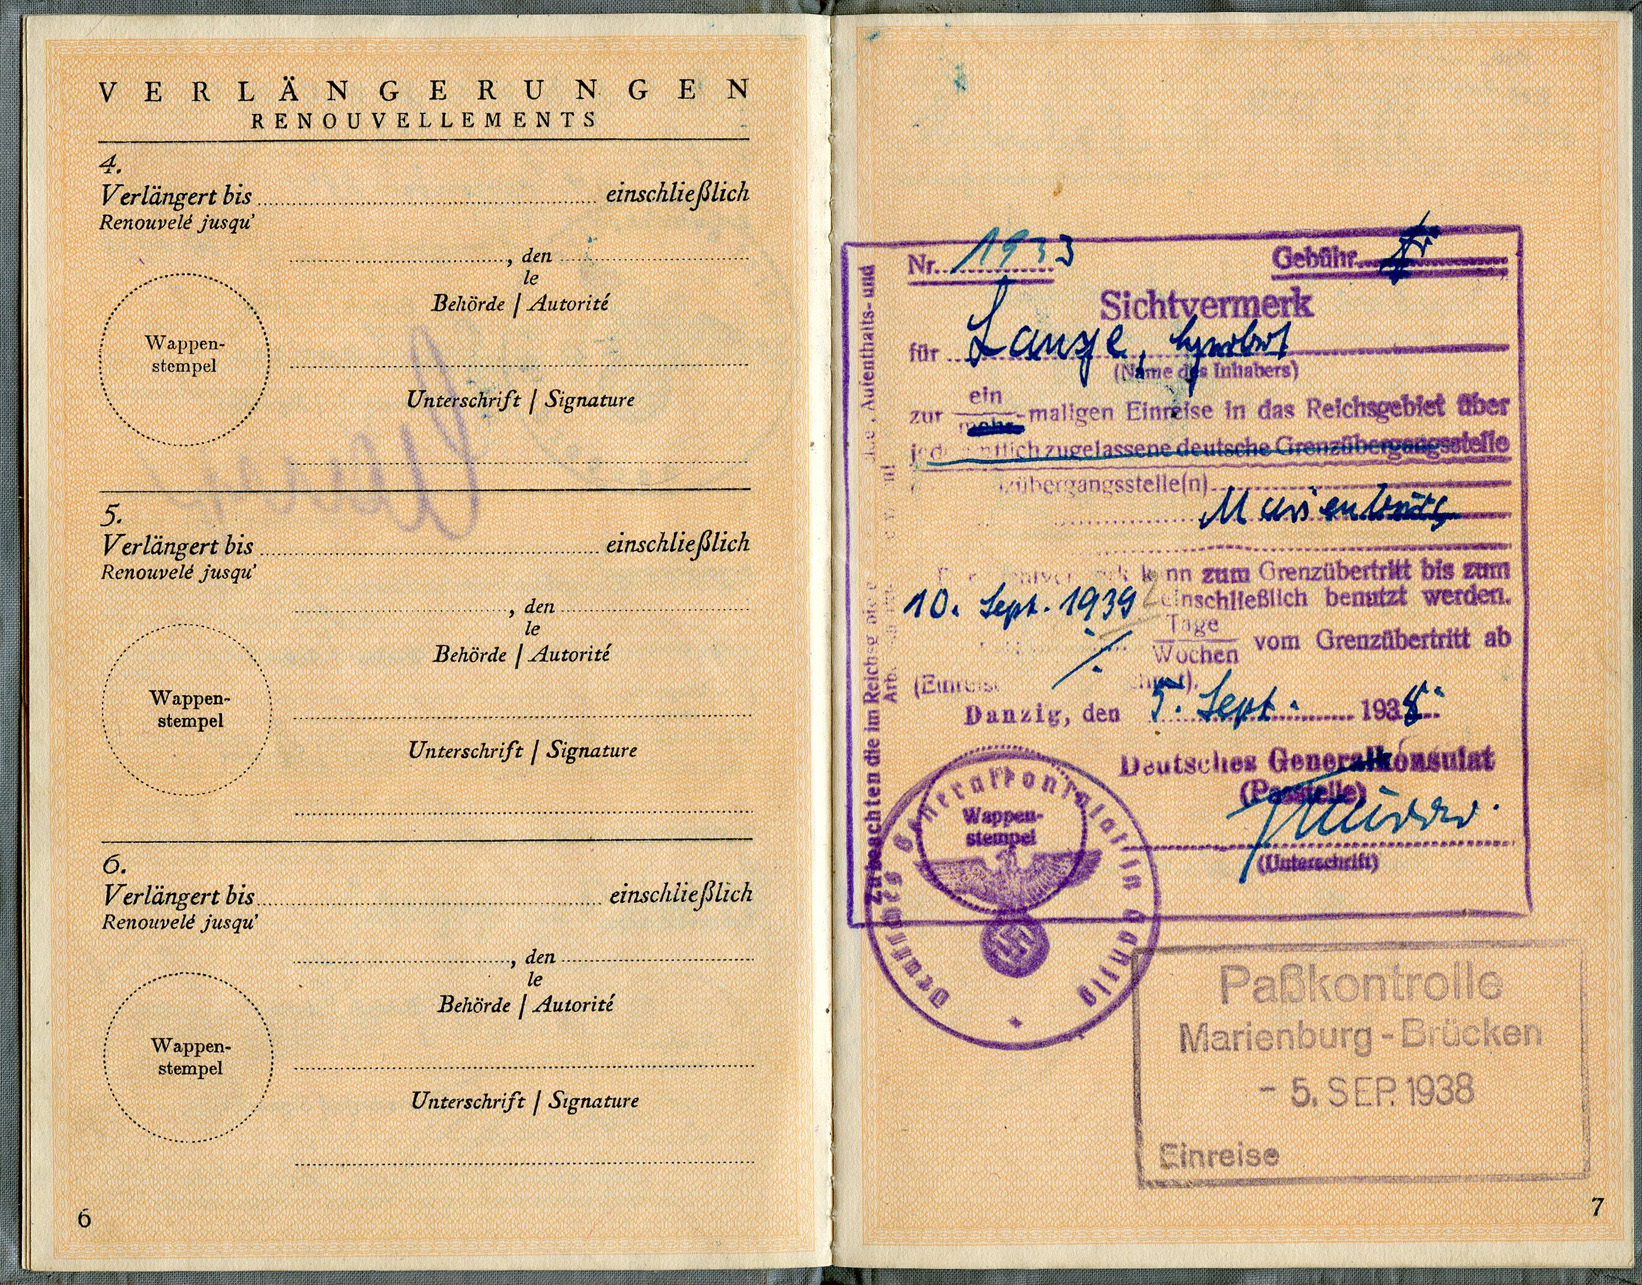 VERLÄNGERUNGEN
RENOUVELLEMENTS
4.
Verlängert bis einschließlich
Renouvelé jusqu'
, den
le
Behörde | Autorité
Wappen-
stempel
Unterschrift | Signature
5.
Verlängert bis einschließlich
Renouvelé jusqu'
, den
le
Behörde | Autorité
Wappen-
stempel
Unterschrift | Signature
6.
Verlängert bis einschließlich
Renouvelé jusqu'
, den
le
Behörde | Autorité
Wappen-
stempel
Unterschrift | Signature
6
Nr. 1933 Gebühr
Sichtvermerk
für Lange,
(Name des Inhabers)
zur ein
mehr-maligen Einreise in das Reichsgebiet über
zugelassene deutsche Grenzübergangsstelle
Marienburg
zum Grenzübertritt bis zum
10. Sept. 1939 einschließlich benutzt werden.
Tage
Wochen vom Grenzübertritt ab
Danzig, den 5. Sept. 1938
Deutsches Generalkonsulat
(Passtelle)
(Unterschrift)
Zu beachten die im Reichsg
Aufenthalts- und
Wappen-
stempel
Deutsches Generalkonsulat in Danzig
Paßkontrolle
Marienburg-Brücken
- 5. SEP. 1938
Einreise
7